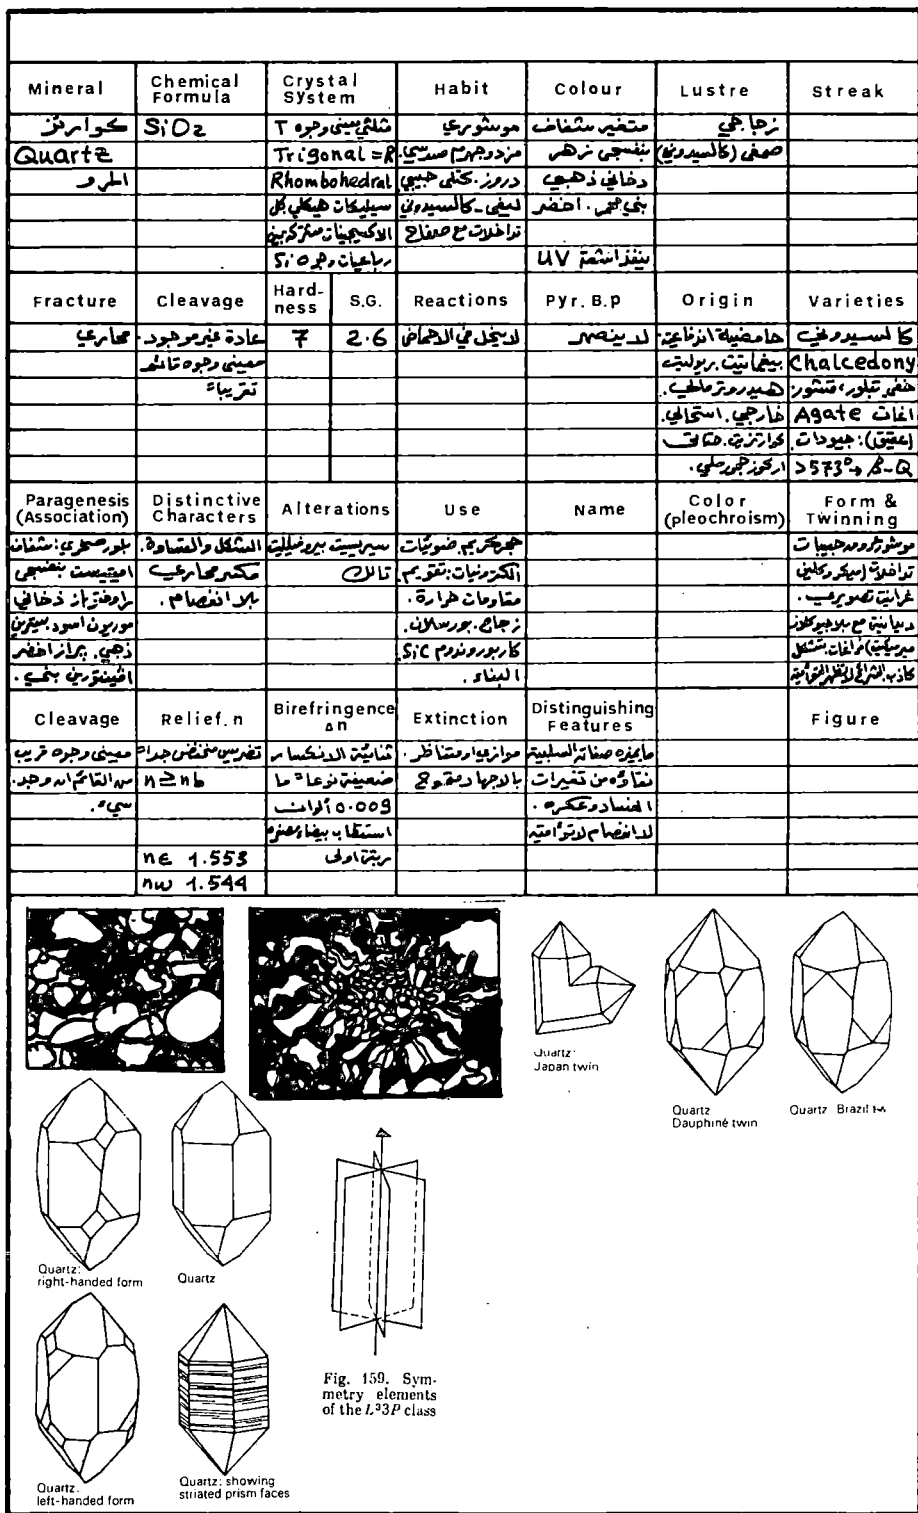 Mineral Chemical Formula Crystal System Habit Colour Lustre Streak
كوارتز SiO2 مثلثي معيني وجوه T موشوري متغير شفاف زجاجي
Quartz Trigonal = R مزدوج هرم سدسي بنفسجي زهر صمغي (كالسيدوني)
المرو Rhombohedral دروز. كتلي حبيبي دخاني ذهبي
سيليكات هيكلي كل ليفي - كالسيدوني بني محمر. اخضر
الاكسجينات مشتركة بين تداخلات مع صفاح
رباعيات وجوه SiO ينفذ اشعة UV
Fracture Cleavage Hardness S.G. Reactions Pyr. B.p Origin Varieties
محاري عادة غير موجود. 7 2.6 لا ينحل في الاحماض لا ينصهر حامضية اندفاعية: كالسيدوني
معيني وجوه قائم بيغماتيت. ريوليت Chalcedony
تقريباً هيدروترمالي. خفي تبلور، قشور:
خارجي. استحالي. اغات Agate
كوارتزيت. (عقيق): جيودات
اركوز حجر رملي. >573° → β-Q
Paragenesis (Association) Distinctive Characters Alterations Use Name Color (pleochroism) Form & Twinning
بلور صخري: شفاف الشكل والقساوة. سيريسيت بيروفيلليت حجر كريم. ضوئيات موشور حبيبات
اميتيست بنفسجي مكسر محاري تالك الكترونيات: تقويم. تداخلات (ميكروكلين
دخاني بلا انفصام. مقاومات حرارة. غرانيت تصويري.
موريون اسود. سيترين زجاج. بورسلان. مع بلاجيوكلاز
ذهبي. براز اخضر كاربوروندوم SiC. ميرميكيت)
افينتورين بني. البناء.
Cleavage Relief. n Birefringence Δn Extinction Distinguishing Features Figure
معيني وجوه قريب تضريس منخفض جداً ثنائية الانكسار موازي او متناظر. مايميزه صفاته السلبية
من القائم ان وجد. n ≥ nb ضعيفة نوعاً ما بالاجهاد متموج نقاؤه من تغيرات
سيء. 0.009 ألوان الفساد وعكره.
استقطاب بيضاء صفراء لا انفصام لا توأمية
nε 1.553 رتبة اولى
nω 1.544
Quartz: Japan twin
Quartz Dauphiné twin
Quartz Brazil tw
Quartz: right-handed form
Quartz
Fig. 159. Symmetry elements of the L³3P class
Quartz. left-handed form
Quartz: showing striated prism faces